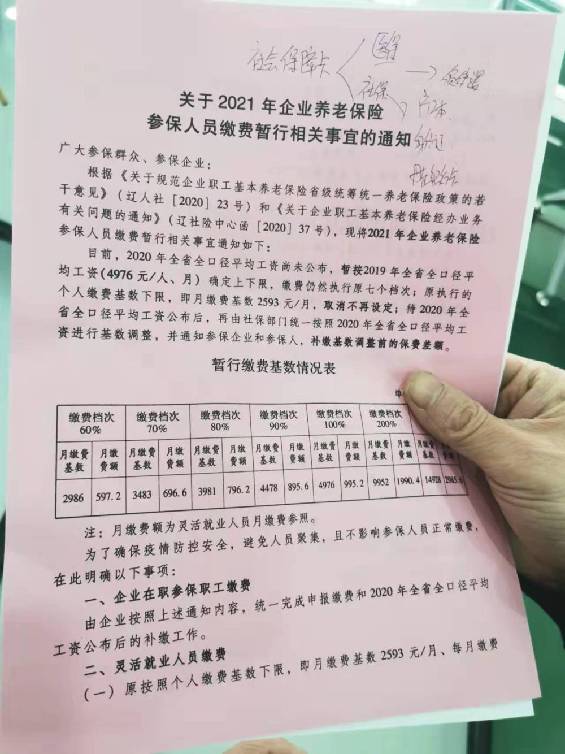 社会保障卡
医保
社保
关于2021年企业养老保险
参保人员缴费暂行相关事宜的通知
广大参保群众、参保企业：
根据《关于规范企业职工基本养老保险省级统筹统一养老保险政策的若
干意见》（辽人社［2020］23号）和《关于企业职工基本养老保险经办业务
有关问题的通知》（辽社险中心函［2020］37号），现将2021年企业养老保险
参保人员缴费暂行相关事宜通知如下：
目前，2020年全省全口径平均工资尚未公布，暂按2019年全省全口径平
均工资(4976元/人、月）确定上下限，缴费仍然执行原七个档次；原执行的
个人缴费基数下限，即月缴费基数2593元/月，取消不再设定；待2020年全
省全口径平均工资公布后，再由社保部门统一按照2020年全省全口径平均工
资进行基数调整，并通知参保企业和参保人，补缴基数调整前的保费差额。
暂行缴费基数情况表
单
缴费档次 60% 缴费档次 70% 缴费档次 80% 缴费档次 90% 缴费档次 100% 缴费档次 200%
月缴费基数 月缴费额 月缴费基数 月缴费额 月缴费基数 月缴费额 月缴费基数 月缴费额 月缴费基数 月缴费额 月缴费基数 月缴费额 月缴费基数 月缴费额
2986 597.2 3483 696.6 3981 796.2 4478 895.6 4976 995.2 9952 1990.4 14928 2985.6
注：月缴费额为灵活就业人员月缴费参照。
为了确保疫情防控安全，避免人员聚集，且不影响参保人员正常缴费，
在此明确以下事项：
一、企业在职参保职工缴费
由企业按照上述通知内容，统一完成申报缴费和2020年全省全口径平均
工资公布后的补缴工作。
二、灵活就业人员缴费
（一）原按照个人缴费基数下限，即月缴费基数2593元/月、每月缴费